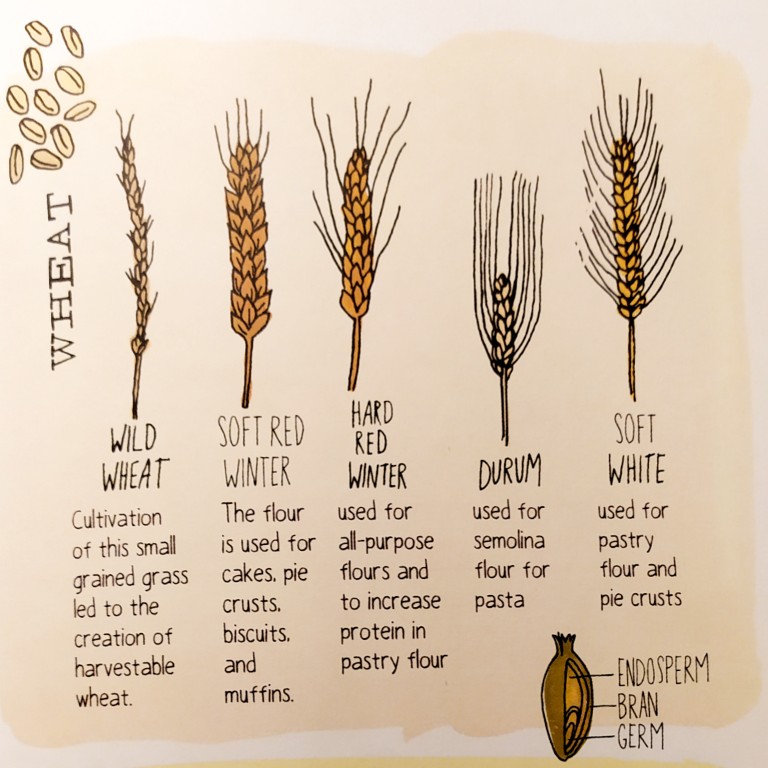 WHEAT
WILD
WHEAT
Cultivation
of this small
grained grass
led to the
creation of
harvestable
wheat.
SOFT RED
WINTER
The flour
is used for
cakes, pie
crusts,
biscuits,
and
muffins.
HARD
RED
WINTER
used for
all-purpose
flours and
to increase
protein in
pastry flour
DURUM
used for
semolina
flour for
pasta
SOFT
WHITE
used for
pastry
flour and
pie crusts
ENDOSPERM
BRAN
GERM